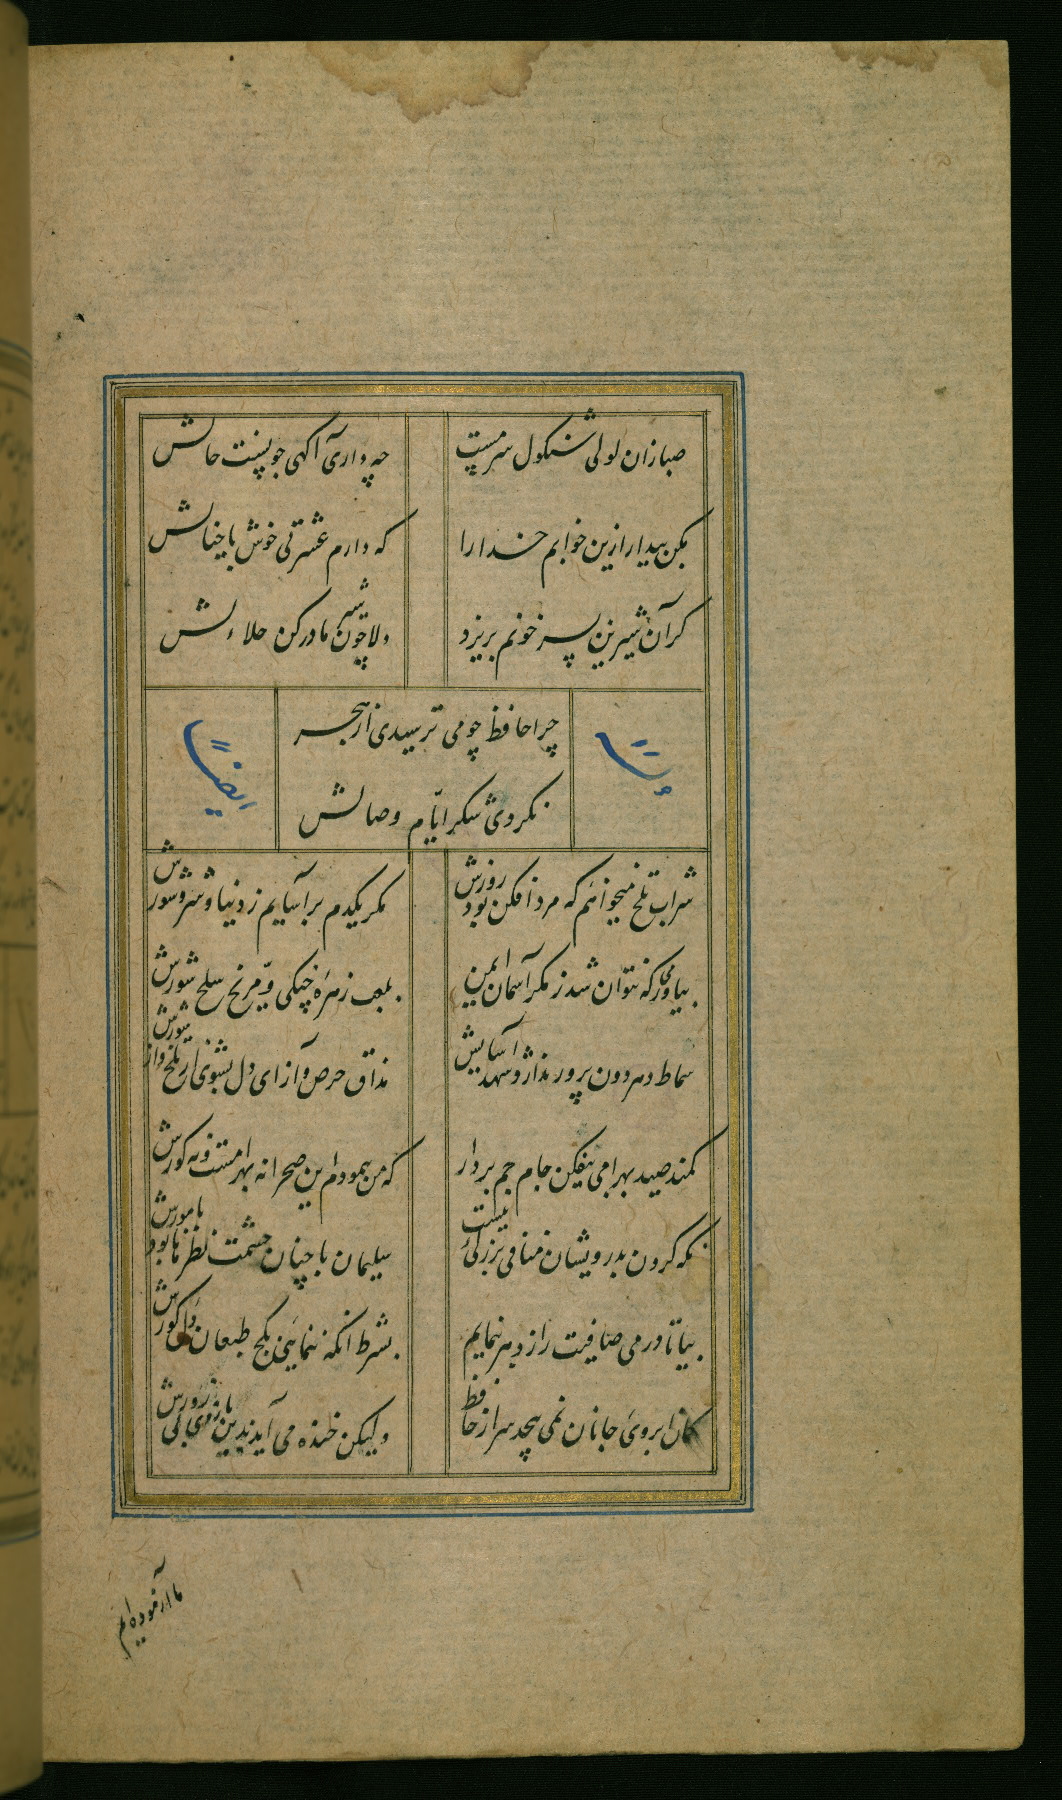 صبا زان لولی شنکول سرمست
چه داری آکهی چونست حالش
مکن بیدار ازین خوابم خدارا
که دارم عشرتی خوش با خیالش
کر آن شیرین پسر خونم بریزد
دلا چون شیر مادر کن حلالش
چرا حافظ چو می ترسیدی از هجر
نکردی شکر ایام وصالش
ایضاً
شراب تلخ میخواهم که مرد افکن بود زورش
مکر یکدم بر آسایم ز دنیا و شر و شورش
بیاور می که نتوان شد ز مکر آسمان ایمن
بلعب زهره چنکی و مریخ سلح شورش
سماط دهر دون پرور ندارد شهد آسایش
مذاق حرص و آز ای دل بشوی از تلخ و از شورش
کمند صید بهرامی بیفکن جام جم بردار
که من پیمودم این صحرا نه بهرامست و نه کورش
نکه کردن بدرویشان منافی بزرکی نیست
سلیمان با چنان حشمت نظرها بود با مورش
بیا تا در می صافیت راز دهر بنمایم
بشرط آنکه ننمایی بکج طبعان دل کورش
کمان ابروی جانان نمی پیچد سر از حافظ
ولیکن خنده می آید بدین بازوی بی زورش
ما آزموده ایم